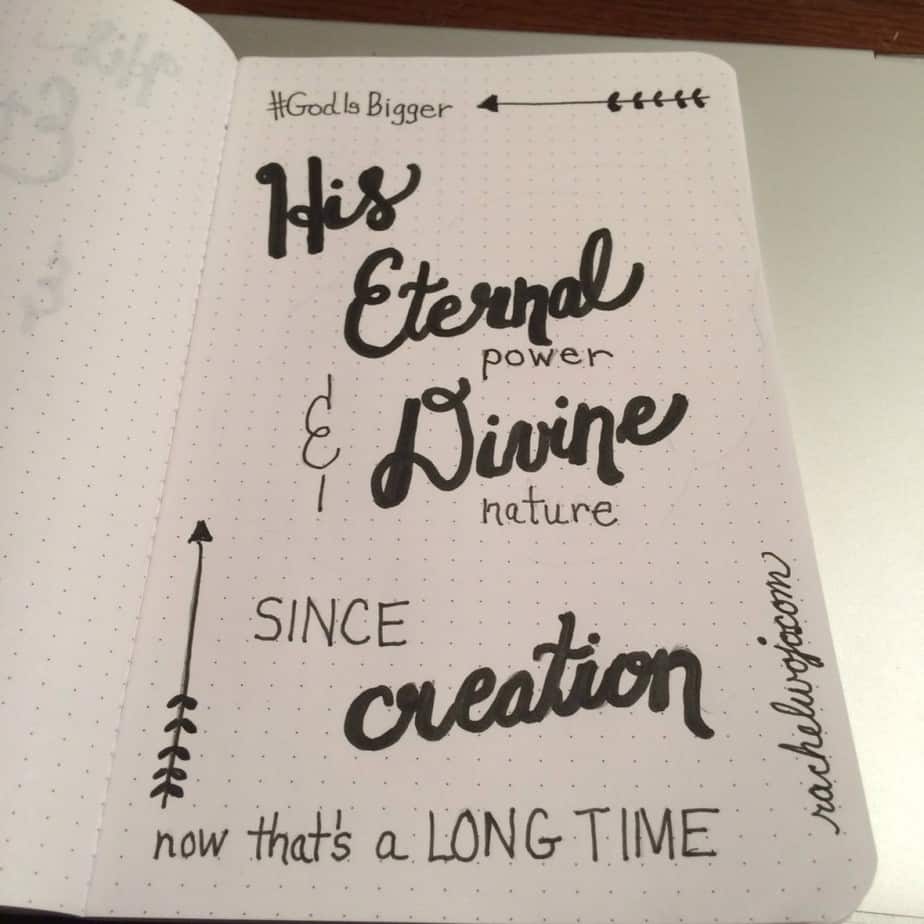 #GodIsBigger
His
Eternal
power
& Divine
nature
SINCE
creation
now that's a LONG TIME
rachelwojo.com